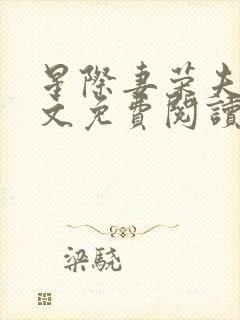 星際妻榮夫
文免費閱讀
梁驍